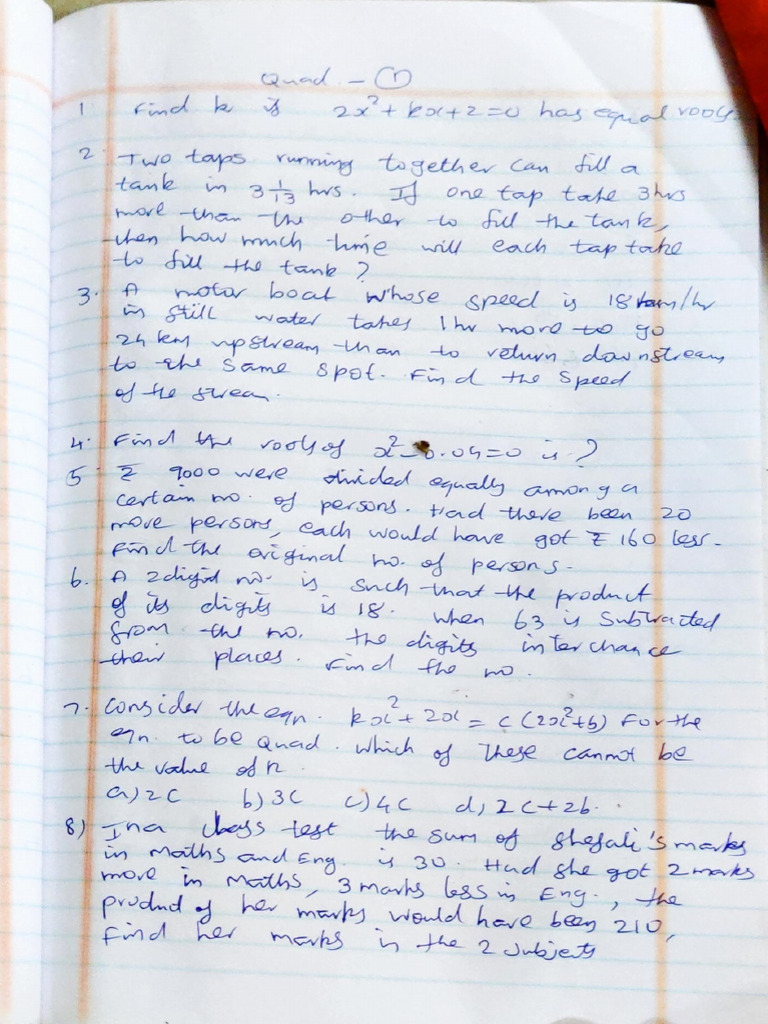 Quad. - ①
1 Find k is 2x²+kx+2=0 has equal roots.
2 Two taps running together can fill a
tank in 3 1/13 hrs. If one tap take 3hrs
more than the other to fill the tank,
then how much time will each tap take
to fill the tank ?
3. A motor boat whose speed is 18 km/hr
in still water takes 1hr more to go
24 km upstream than to return downstream
to the same spot. Find the speed
of the stream.
4. Find the roots of x²-0.04=0 is ?
5 ₹ 9000 were divided equally among a
certain no. of persons. Had there been 20
more persons, each would have got ₹ 160 less.
Find the original no. of persons.
6. A 2digit no. is such that the product
of its digits is 18. When 63 is subtracted
from the no. the digits interchance
their places. Find the no.
7. Consider the eqn. kx²+2x = c(2x²+b) For the
eqn. to be quad. which of these cannot be
the value of k
a) 2c b) 3c c) 4c d) 2c+2b.
8) In a class test the sum of Shefali's marks
in maths and Eng. is 30. Had she got 2 marks
more in maths, 3 marks less in Eng., the
product of her marks would have been 210,
Find her marks in the 2 subjects